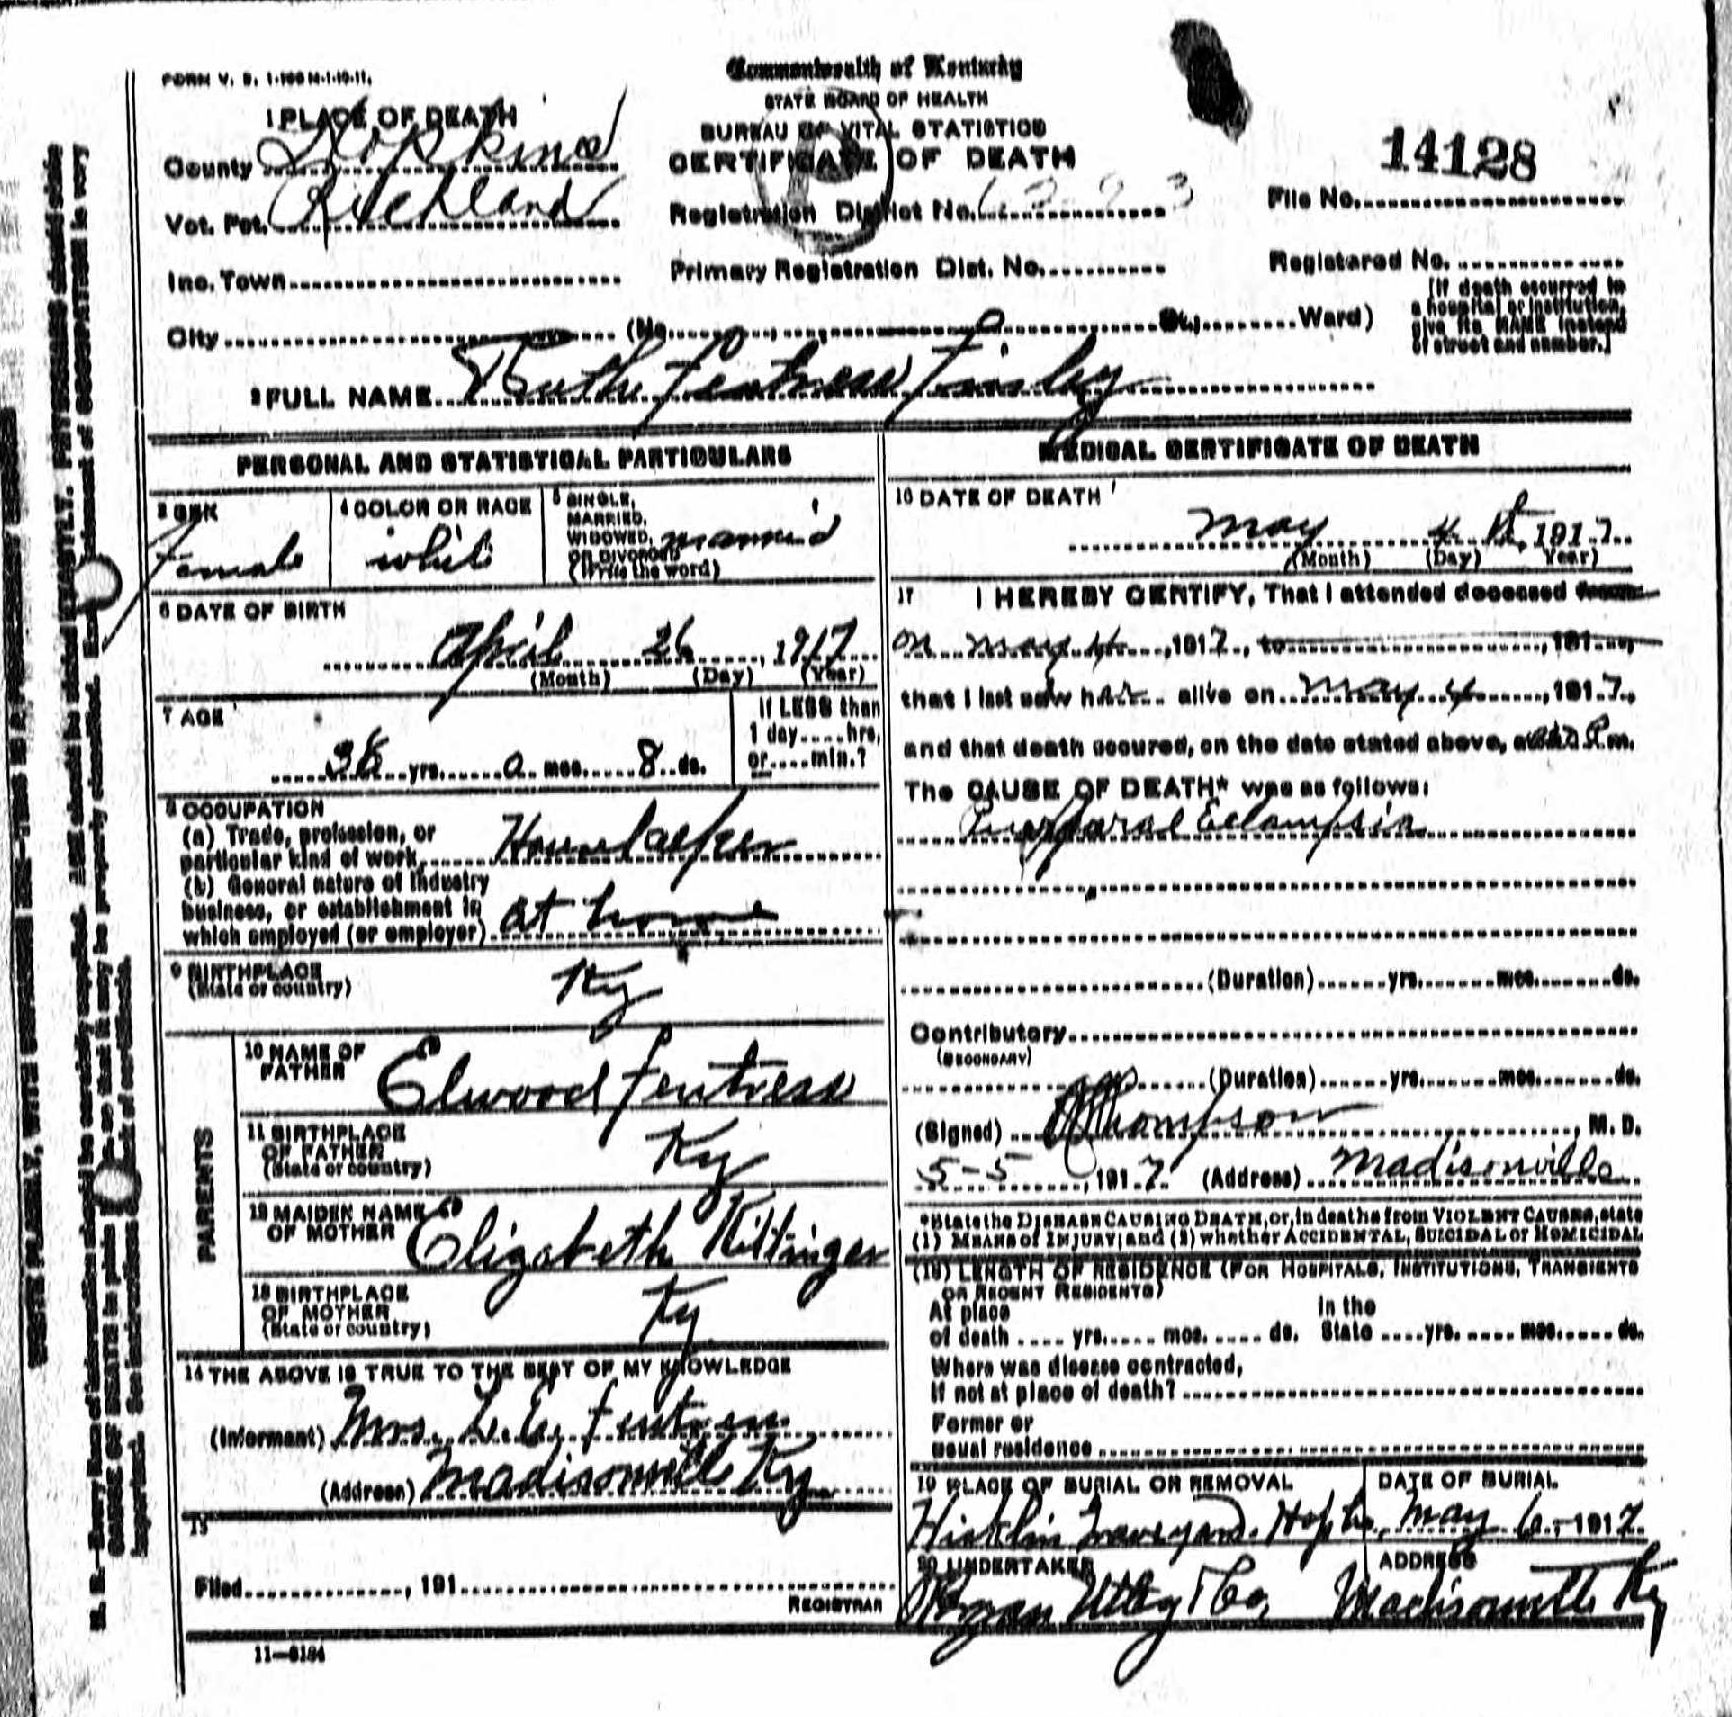 FORM V. S. 1-100 M-1-10-11.
Commonwealth of Kentucky
STATE BOARD OF HEALTH
BUREAU OF VITAL STATISTICS
CERTIFICATE OF DEATH
1 PLACE OF DEATH
County Hopkins
Vot. Pct. Richland
Inc. Town
City (No. St., Ward)
Registration District No.
Primary Registration Dist. No.
14128
File No.
Registered No.
[If death occurred in
a hospital or institution,
give its NAME instead
of street and number.]
2 FULL NAME Ruth Fentress Finley
PERSONAL AND STATISTICAL PARTICULARS
3 SEX
Female
4 COLOR OR RACE
white
5 SINGLE,
MARRIED,
WIDOWED,
OR DIVORCED
(Write the word)
married
6 DATE OF BIRTH
April 26, 1917
(Month) (Day) (Year)
7 AGE
yrs. 0 mos. 8 ds.
If LESS than
1 day....hrs.
or....min.?
8 OCCUPATION
(a) Trade, profession, or
particular kind of work Housekeeper
(b) General nature of industry
business, or establishment in
which employed (or employer) at home
9 BIRTHPLACE
(State or country)
Ky
PARENTS
10 NAME OF
FATHER
Elwood Fentress
11 BIRTHPLACE
OF FATHER
(State or country)
Ky
12 MAIDEN NAME
OF MOTHER
Elizabeth Kittinger
13 BIRTHPLACE
OF MOTHER
(State or country)
Ky
14 THE ABOVE IS TRUE TO THE BEST OF MY KNOWLEDGE
(Informant) Mrs. Fentress
(Address) Madisonville Ky
15
Filed, 191
REGISTRAR
11—5184
MEDICAL CERTIFICATE OF DEATH
16 DATE OF DEATH
May 4th, 1917
(Month) (Day) Year)
17 I HEREBY CERTIFY, That I attended deceased from
on May 4, 1917, to, 191
that I last saw her alive on May 4, 1917,
and that death occured, on the date stated above, at P.m.
The CAUSE OF DEATH* was as follows:
Puerperal Eclampsia
(Duration) yrs. mos. ds.
Contributory
(SECONDARY)
(Duration) yrs. mos. ds.
(Signed) Thompson, M. D.
5-5, 1917 (Address) Madisonville
*State the DISEASE CAUSING DEATH, or, in deaths from VIOLENT CAUSES, state
(1) MEANS of INJURY; and (2) whether ACCIDENTAL, SUICIDAL or HOMICIDAL
(18) LENGTH OF RESIDENCE (FOR HOSPITALS, INSTITUTIONS, TRANSIENTS
OR RECENT RESIDENTS)
At place
of death yrs. mos. ds.
In the
State yrs. mos. ds.
Where was disease contracted,
If not at place of death?
Former or
usual residence
19 PLACE OF BURIAL OR REMOVAL
Graveyard. Hop Co.
DATE OF BURIAL
May 6, 1917
20 UNDERTAKER
Utley & Co.
ADDRESS
Madisonville Ky